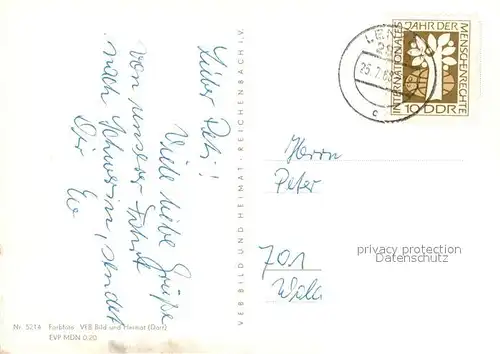 Lieber Peti!
Viele liebe Grüße
von unserer Fahrt
nach Schwerin, sendet
Dir
VEB BILD UND HEIMAT · REICHENBACH i.V.
INTERNATIONALES
JAHR DER
MENSCHENRECHTE
10 DDR
25.7.68
c
Herrn
Peter
701
privacy protection
Datenschutz
Nr. 5214 Farbfoto: VEB Bild und Heimat (Darr)
EVP MDN 0,20